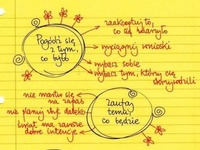 Pogódź się
z tym,
co było
zaakceptuj to,
co się zdarzyło
wyciągnij wnioski
wybacz sobie
wybacz tym, którzy cię
skrzywdzili
Zaufaj
temu,
co będzie
nie martw się
na zapas
nie planuj zbyt daleko
świat ma zawsze
dobre intencje